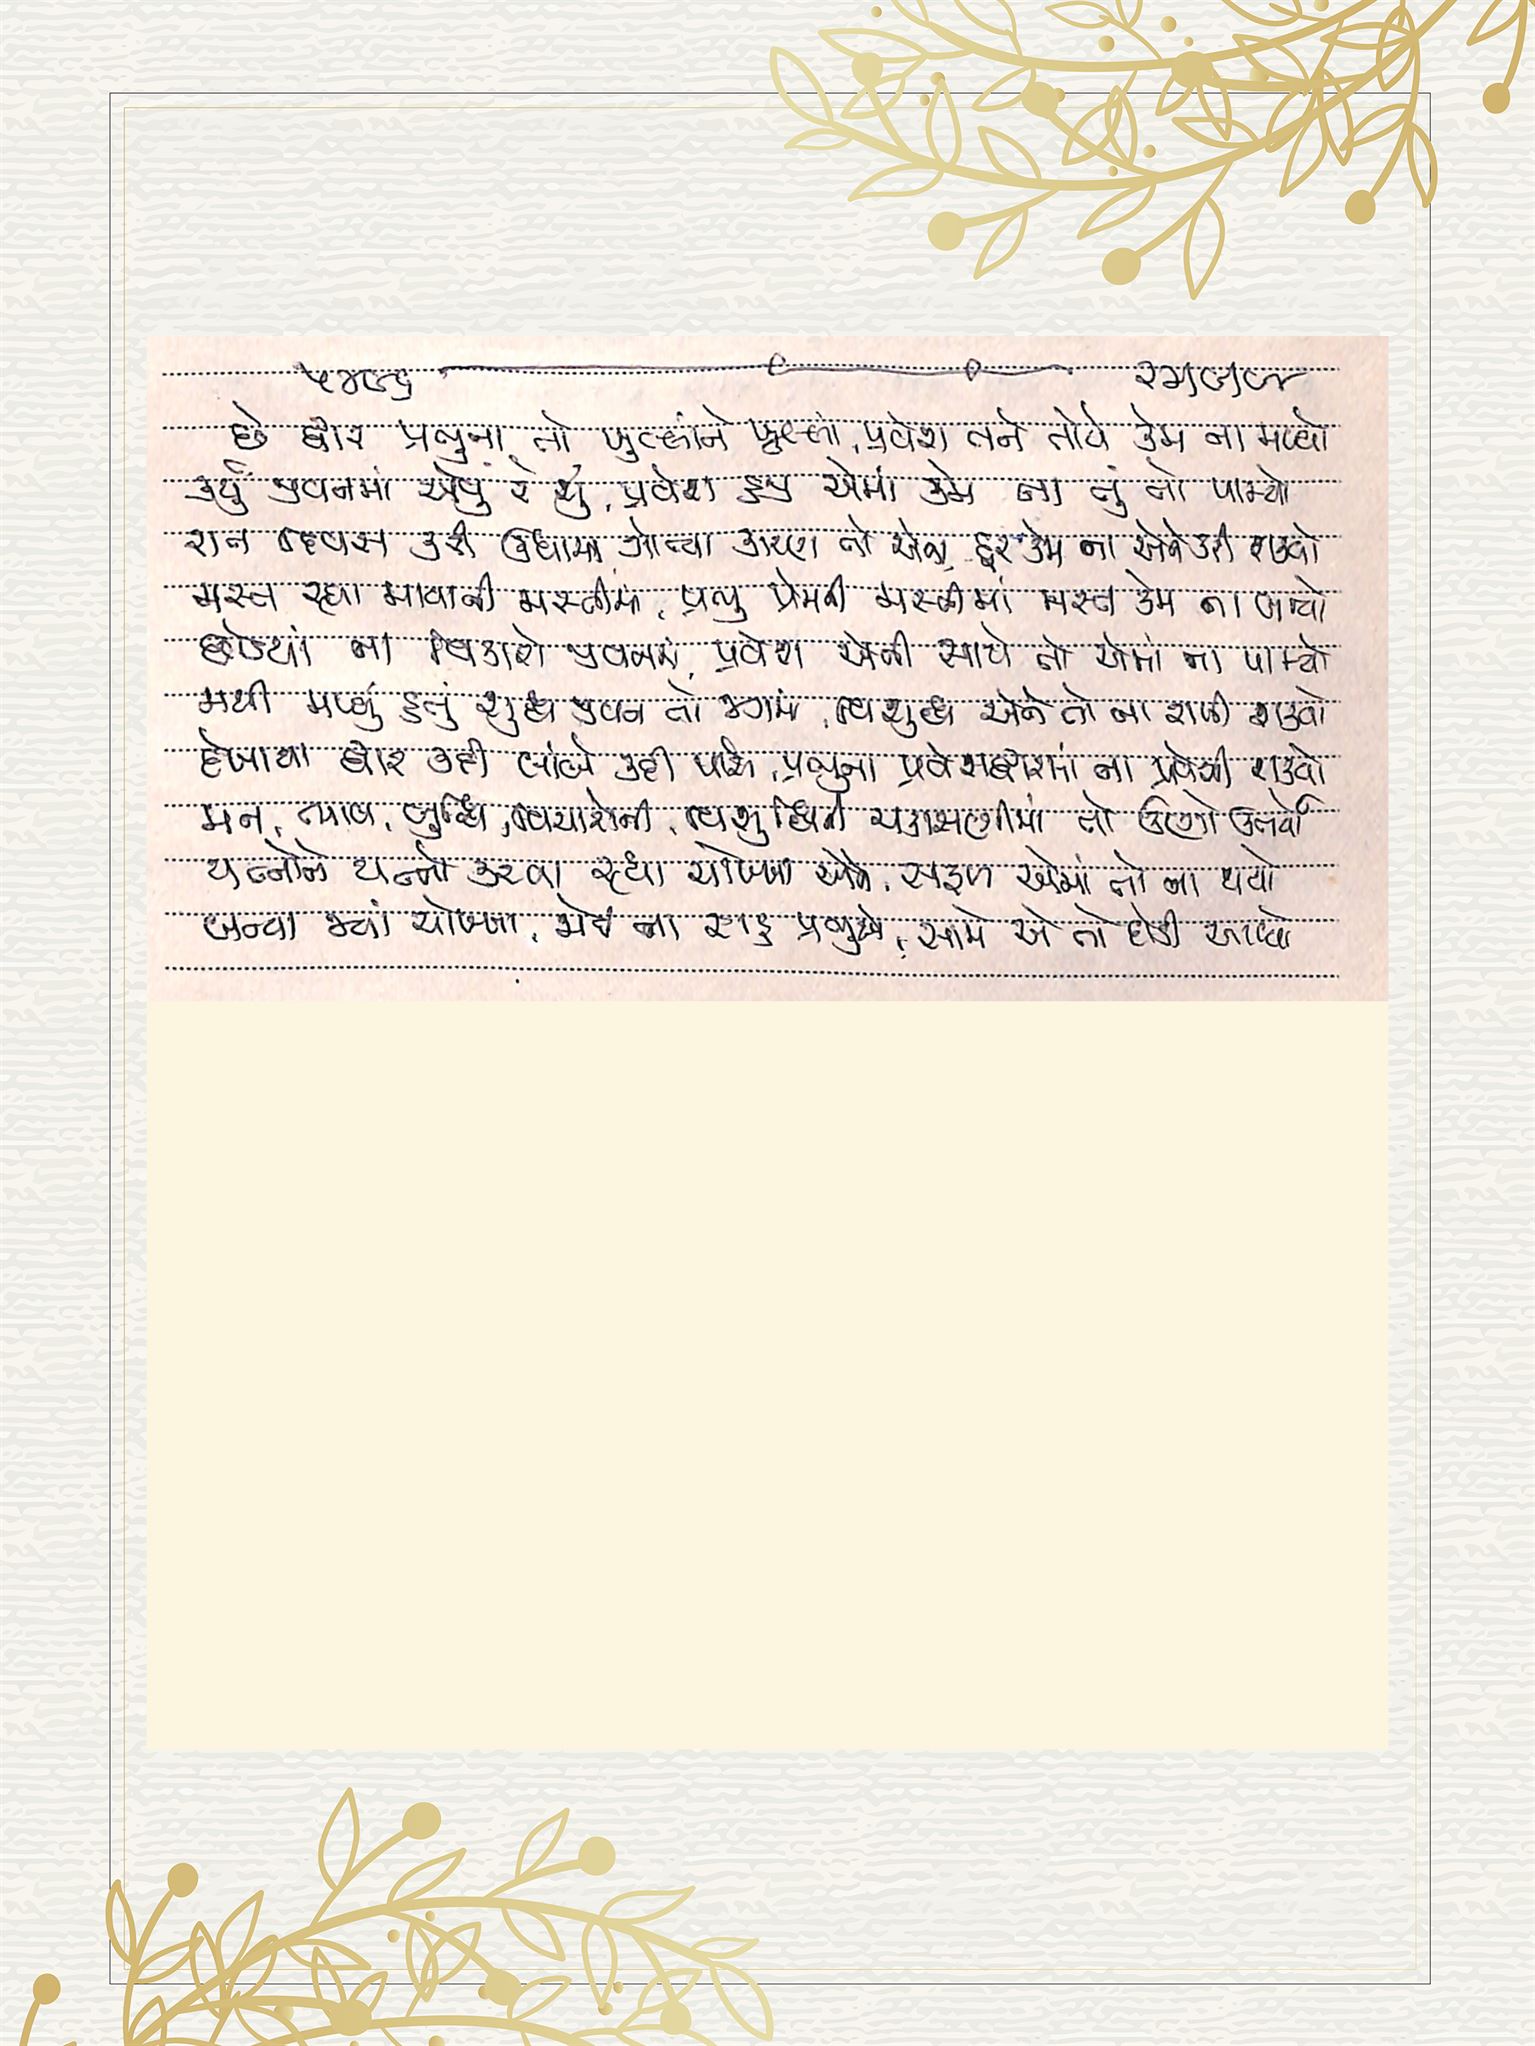 છે દ્વાર પ્રભુના, તો ખુલ્લાંને ખુલ્લાં, પ્રવેશ તને તોયે કેમ ના મળ્યો
કર્યું જીવનમાં એવું રે શું, પ્રવેશ હજી એમાં કેમ ના તું તો પામ્યો
રાત દિવસ કરી ઉધામા ગોત્યા કારણ તો એના, દૂર કેમ ના એને કરી શક્યો
મસ્ત રહ્યા માયાની મસ્તીમાં, પ્રભુ પ્રેમની મસ્તીમાં મસ્ત કેમ ના બન્યો
છોડયાં ના વિકારો જીવનમાં, પ્રવેશ એની સાથે તો એમાં ના પામ્યો
મથી મળ્યું હતું શુદ્ધ જીવન તો જગમાં, વિશુદ્ધ એને તો ના રાખી શક્યો
દેખાયા દ્વાર કદી લાંબે કદી પાસે, પ્રભુના પ્રવેશદ્વારમાં ના પ્રવેશી શક્યો
મન, ભાવ, બુદ્ધિ, વિચારોની, વિશુદ્ધિની ચકાસણીમાં તો ઊણો ઊતર્યો
યત્નોને યત્નો કરવા રહ્યા ચોખ્ખા એને, સફળ એમાં તો ના થયો
બન્યા જ્યાં ચોખ્ખા, ભેદ ના રાખ્યું પ્રભુએ, સામે એ તો દોડી આવ્યો